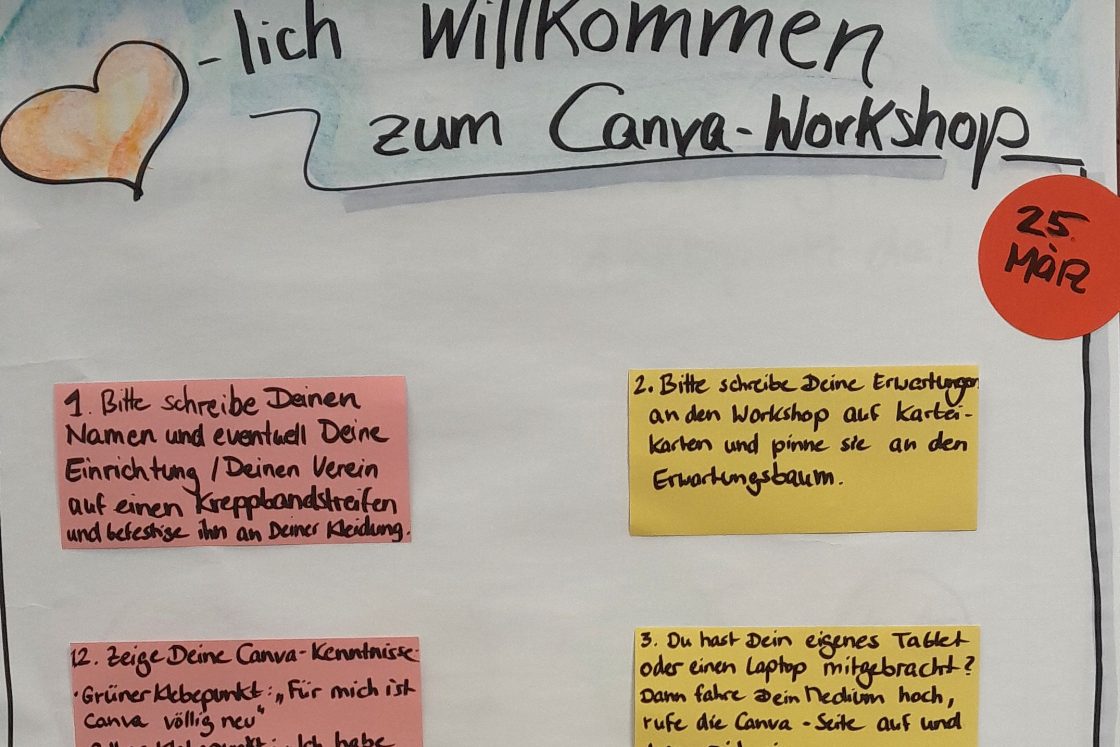 -lich Willkommen
zum Canva-Workshop
25.
MÄR
1. Bitte schreibe Deinen
Namen und eventuell Deine
Einrichtung / Deinen Verein
auf einen Kreppbandstreifen
und befestige ihn an Deiner Kleidung.
2. Bitte schreibe Deine Erwartungen
an den Workshop auf Kartei-
karten und pinne sie an den
Erwartungsbaum.
12. Zeige Deine Canva-Kenntnisse
• Grüner Klebepunkt: „Für mich ist
Canva völlig neu“
Klebepunkt: „Ich habe
3. Du hast Dein eigenes Tablet
oder einen Laptop mitgebracht?
Dann fahre Dein Medium hoch,
rufe die Canva-Seite auf und